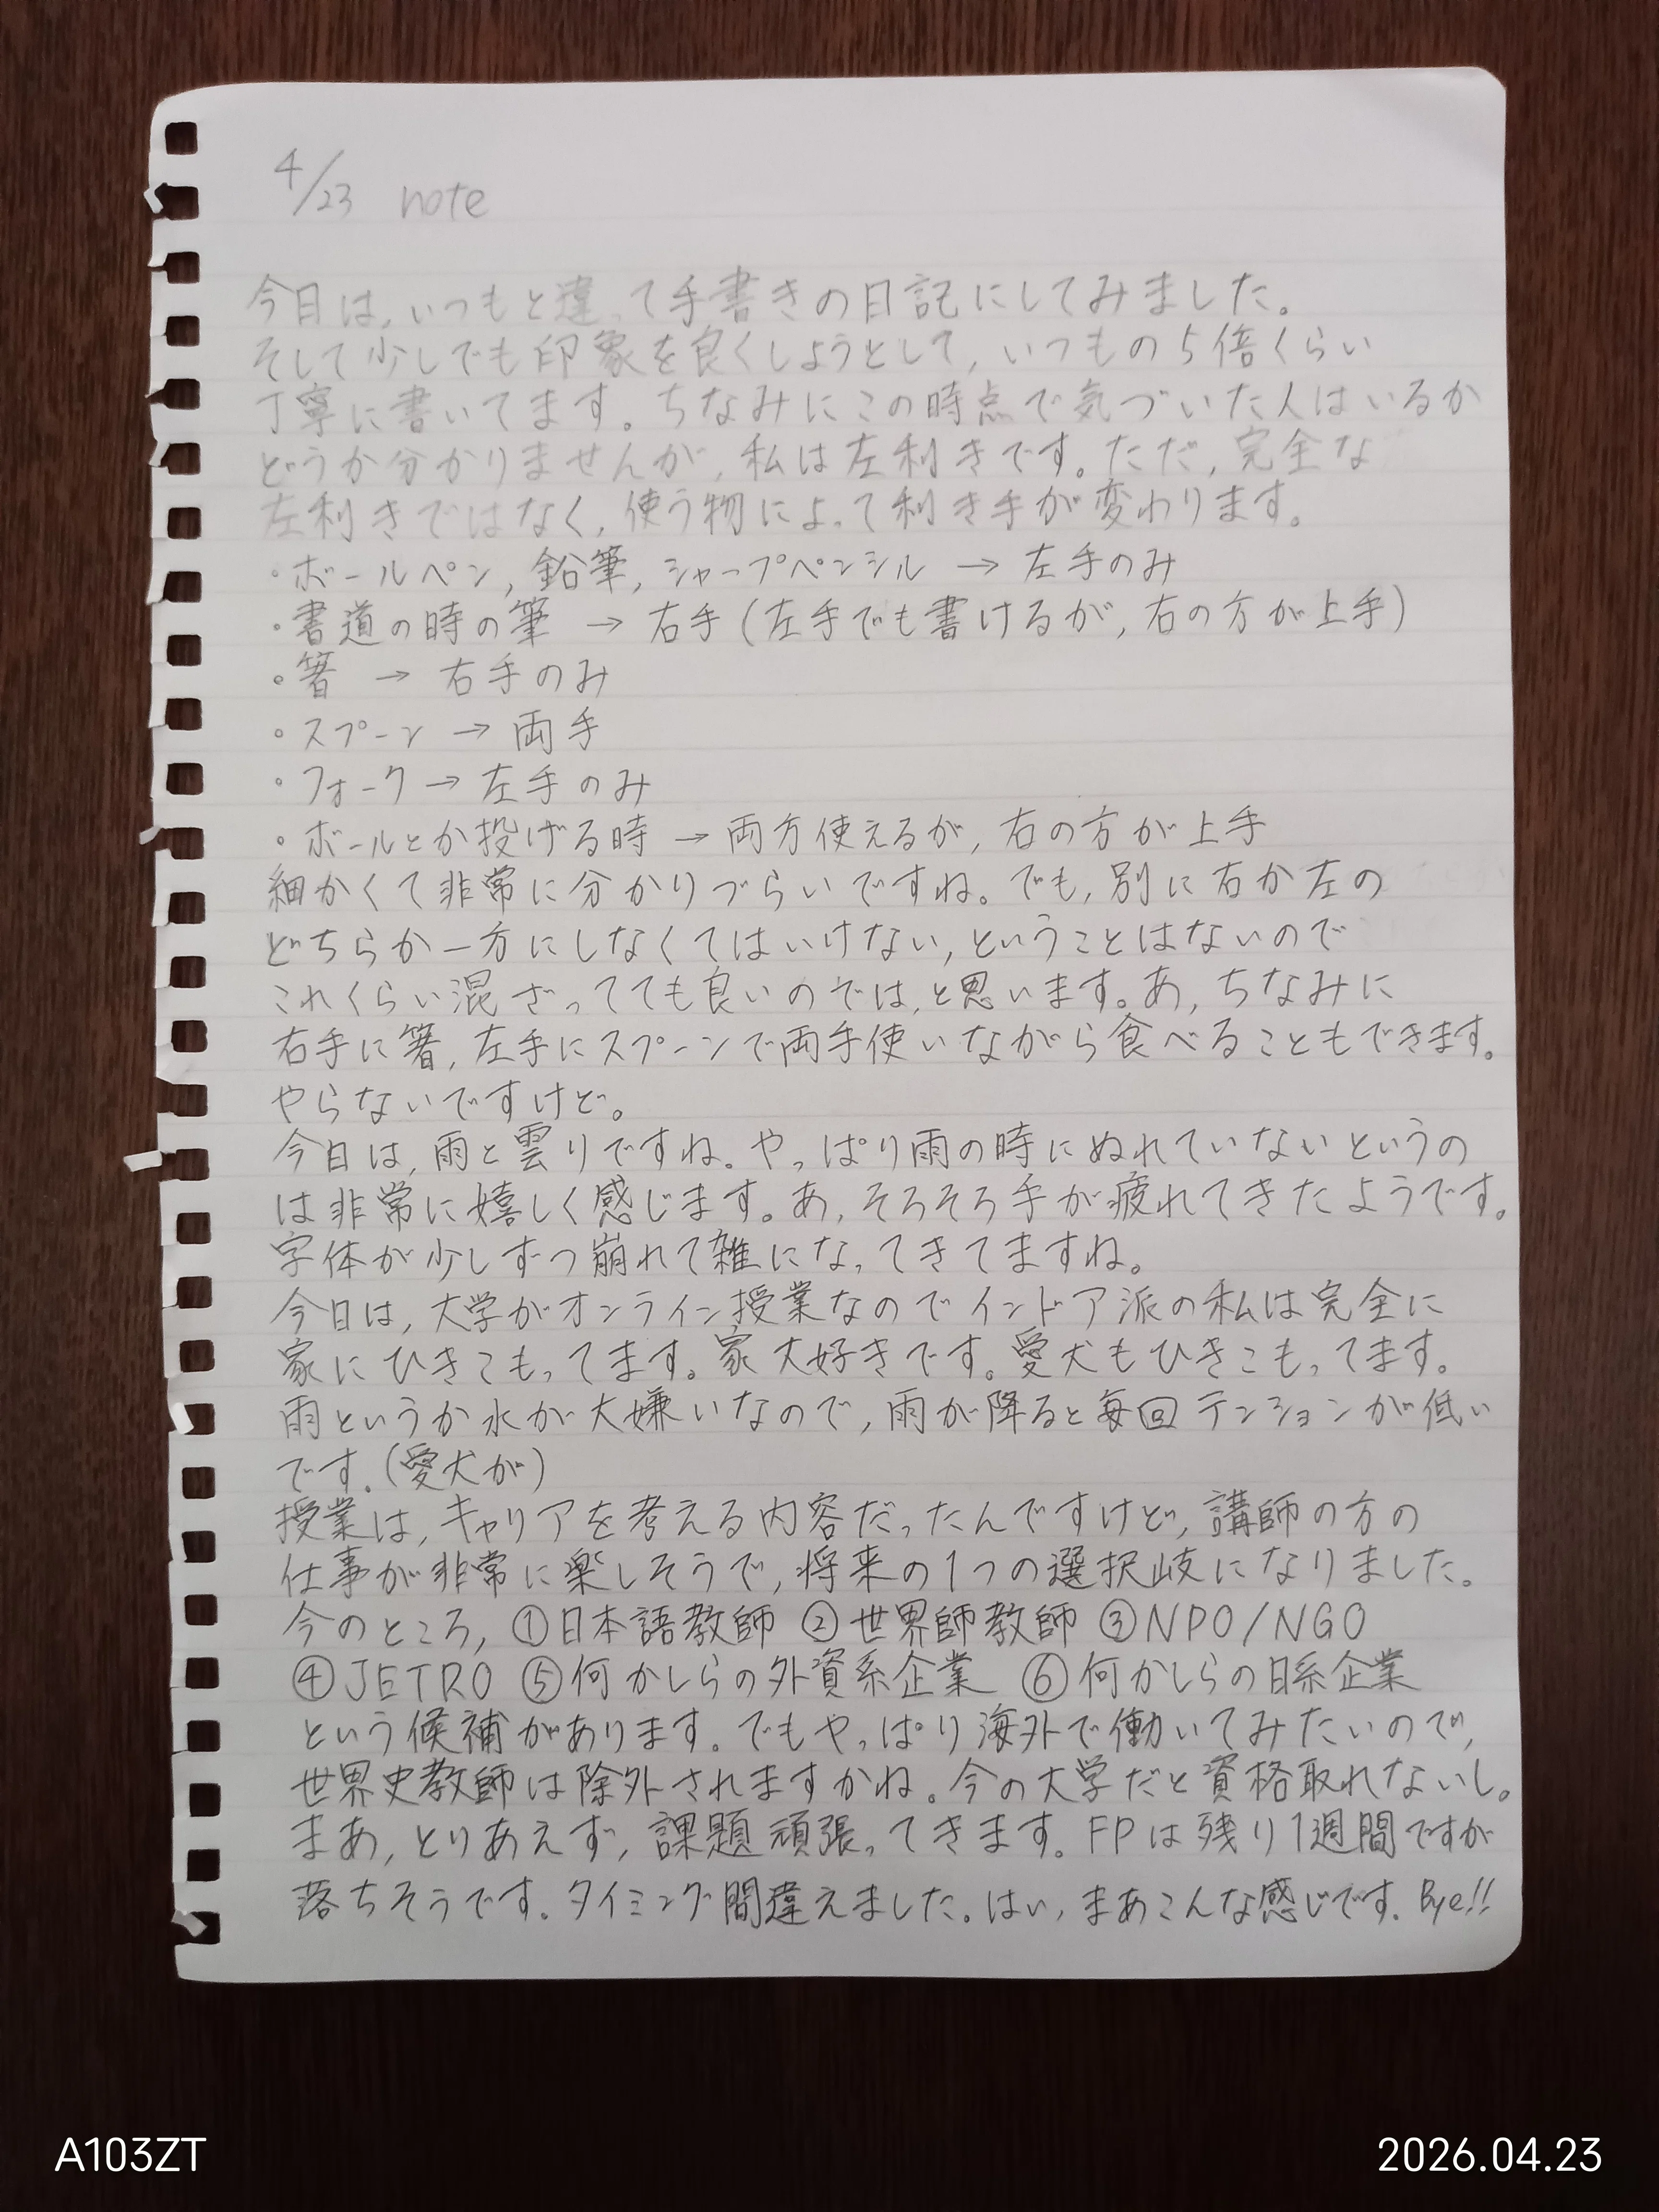 4/23 note
今日は,いつもと違って手書きの日記にしてみました。
そして少しでも印象を良くしようとして,いつもの5倍くらい
丁寧に書いてます。ちなみにこの時点で気づいた人はいるか
どうか分かりませんが,私は左利きです。ただ,完全な
左利きではなく,使う物によって利き手が変わります。
・ボールペン,鉛筆,シャープペンシル → 左手のみ
・書道の時の筆 → 右手(左手でも書けるが,右の方が上手)
・箸 → 右手のみ
・スプーン → 両手
・フォーク → 左手のみ
・ボールとか投げる時 → 両方使えるが,右の方が上手
細かくて非常に分かりづらいですね。でも,別に右か左の
どちらか一方にしなくてはいけない,ということはないので
これくらい混ざってても良いのでは,と思います。あ,ちなみに
右手に箸,左手にスプーンで両手使いながら食べることもできます。
やらないですけど。
今日は,雨と曇りですね。やっぱり雨の時にぬれていないというの
は非常に嬉しく感じます。あ,そろそろ手が疲れてきたようです。
字体が少しずつ崩れて雑になってきてますね。
今日は,大学がオンライン授業なのでインドア派の私は完全に
家にひきこもってます。家大好きです。愛犬もひきこもってます。
雨というか水が大嫌いなので,雨が降ると毎回テンションが低い
です.(愛犬が)
授業は,キャリアを考える内容だったんですけど,講師の方の
仕事が非常に楽しそうで,将来の1つの選択岐になりました。
今のところ,①日本語教師 ②世界師教師 ③NPO/NGO
④JETRO ⑤何かしらの外資系企業 ⑥何かしらの日系企業
という候補があります。でもやっぱり海外で働いてみたいので,
世界史教師は除外されますかね。今の大学だと資格取れないし。
まあ,とりあえず,課題頑張ってきます。FPは残り1週間ですが
落ちそうです。タイミング間違えました。はい,まあこんな感じです.Bye!!
A103ZT
2026.04.23